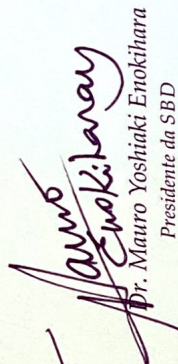 Mauro
Enokihara
Dr. Mauro Yoshiaki Enokihara
Presidente da SBD